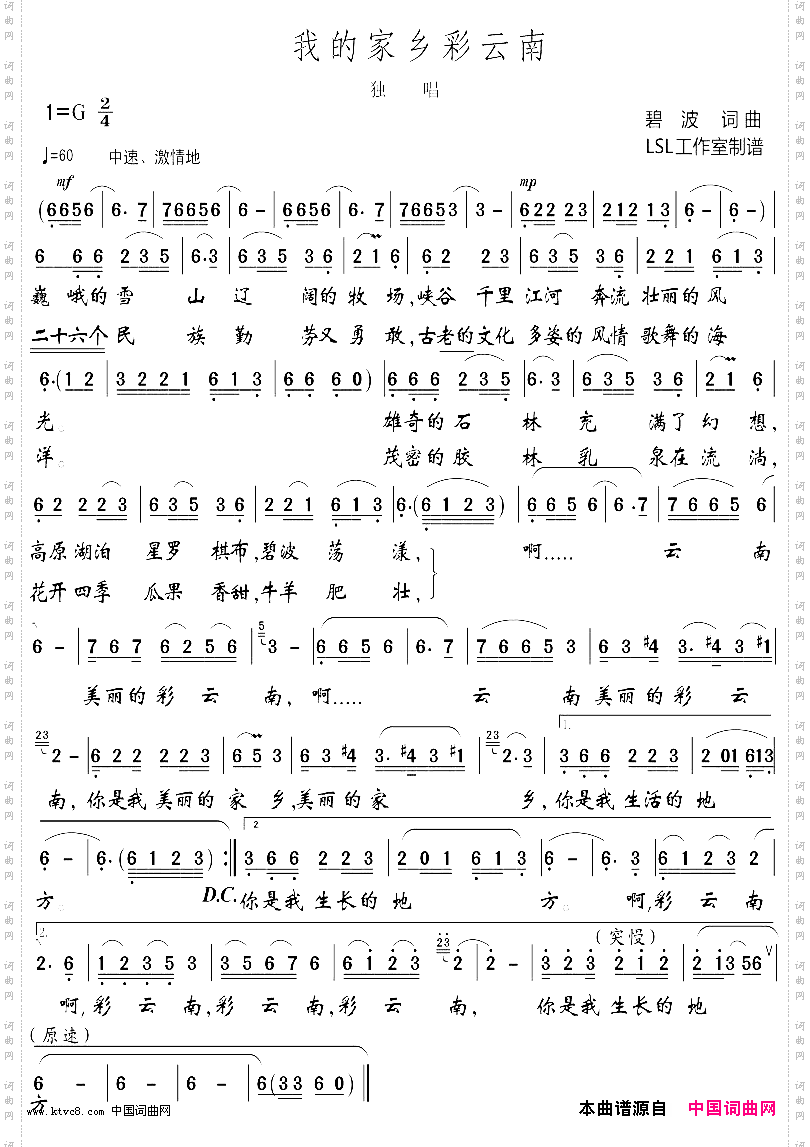 我的家乡彩云南
独 唱
1=G 2/4
碧 波 词曲
♩=60 中速、激情地
LSL工作室制谱
mf mp
(6656 6·7 76656 6- 6656 6·7 76653 3- 622 23 212 13 6- 6-)
6 66 235 6·3 635 36 216 62 23 635 36 221 613
巍 峨的雪 山 辽 阔的牧 场,峡谷 千里 江河 奔流 壮丽的风
二十六个民 族 勤 劳又 勇 敢,古老的文化 多姿的 风情 歌舞的海
6·(12 3221 613 66 60) 666 235 6·3 635 36 21 6
光。 雄奇的石 林 充 满了 幻 想,
洋。 茂密的胶 林 乳 泉在 流 淌,
62 223 635 36 221 613 6·(6123) 665 6·7 7665 6
高原湖泊 星罗 棋布,碧波 荡 漾, 啊..... 云 南
花开四季 瓜果 香甜,牛羊 肥 壮,
6- 767 6256 5 3- 6656 6·7 7665 3 63#4 3·#43#1
美丽的彩 云 南, 啊..... 云 南 美丽的彩 云
23 2- 622 223 653 63#4 3·#431 23 2·3 1. 366 223 201 613
南, 你是我 美丽的 家 乡,美丽的家 乡, 你是我 生活的 地
6- 6·(6123) :‖ 2 366 223 201 613 6- 6·3 235 6
方。 D.C. 你是我 生长的 地 方。 啊,彩 云 南
2. 2·6 12 35 35 67 612 3 23 2 2- 323 212 213 56 V
(突慢)
啊,彩 云 南,彩 云 南,彩 云 南, 你是我 生长的 地
(原速)
6- 6- 6- 6- 6(33 60)
方
www.ktvc8.com 中国词曲网
本曲谱源自 中国词曲网